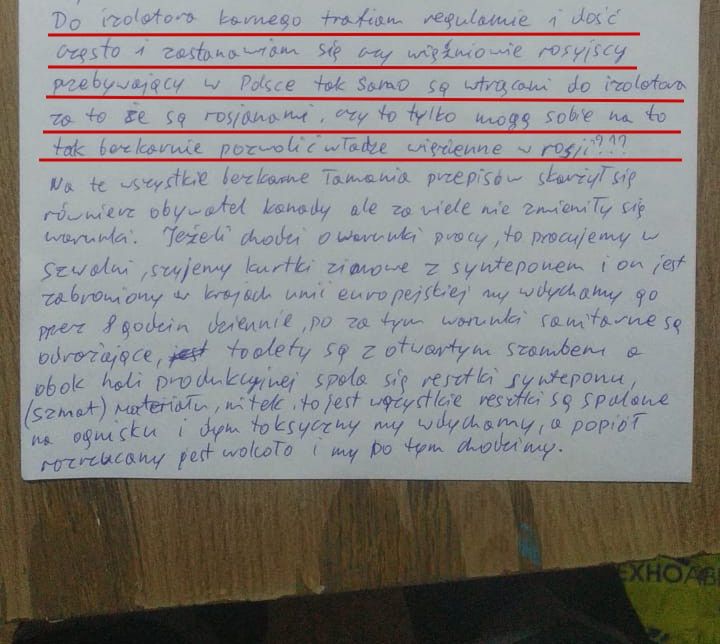 Do izolatora karnego trafiam regularnie i dość
często i zastanawiam się czy więźniowie rosyjscy
przebywający w Polsce tak samo są wtrącani do izolatora
za to że są rosjanami, czy to tylko mogą sobie na to
tak bezkarnie pozwolić władze więzienne w rosji???
Na te wszystkie bezkarne łamania przepisów skarżył się
równierz obywatel kanady ale za wiele nie zmieniły się
warunki. Jeżeli chodzi o warunki pracy, to pracujemy w
szwalni, szyjemy kurtki zimowe z synteponem i on jest
zabroniony w krajach unii europejskiej my wdychamy go
przez 8 godzin dziennie, po za tym warunki sanitarne są
odrażające, toalety są z otwartym szambem a
obok hali produkcyjnej spala się resztki synteponu,
(szmat) materiału, nitek, to jest wszystkie resztki są spalane
na ognisku i dym toksyczny my wdychamy, a popiół
rozrzucany jest wokoło i my po tym chodzimy.
ЕХНОАВ